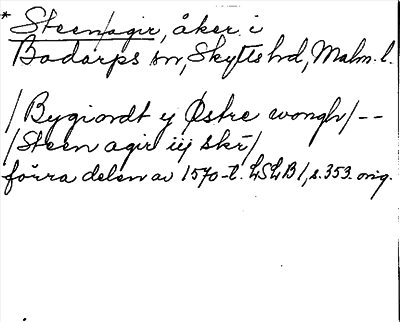 * Steen/agir, åker i
Bodarps sn, Skytts hd, Malm. l.
/Bygiordt y Østre wongh/ --
/Steen agir iij skr/
förra delen av 1570-t. LSLB 1, s. 353. orig.